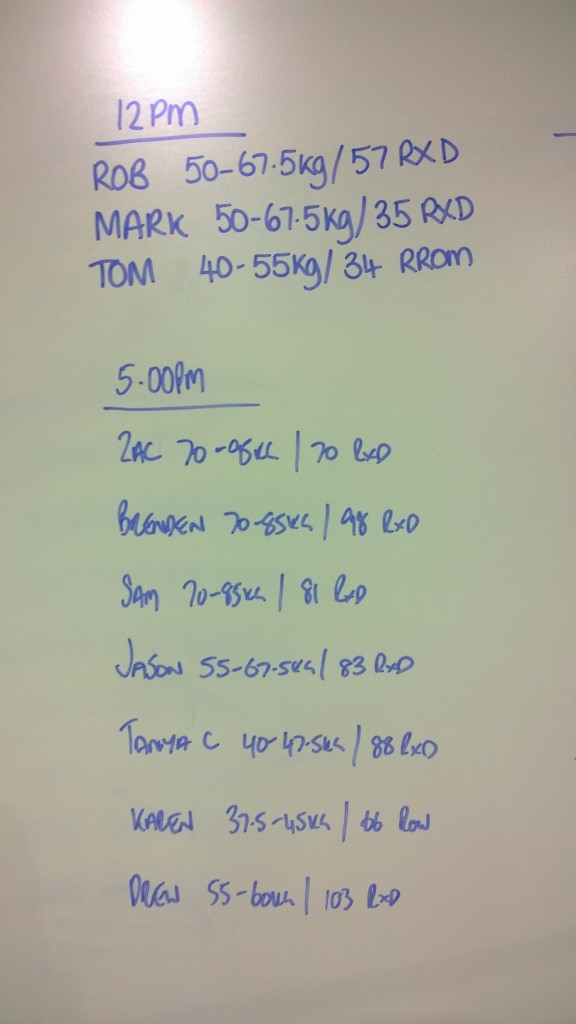 12PM
ROB 50-67.5kg/57 RXD
MARK 50-67.5kg/35 RXD
TOM 40-55kg/34 RROM
5.00PM
ZAC 70-95KG | 70 RXD
BRENDEN 70-85KG | 98 RXD
SAM 70-85KG | 81 RXD
JASON 55-67.5KG | 83 RXD
TANYA C 40-47.5KG | 88 RXD
KAREN 37.5-45KG | 66 ROW
DREW 55-60KG | 103 RXD